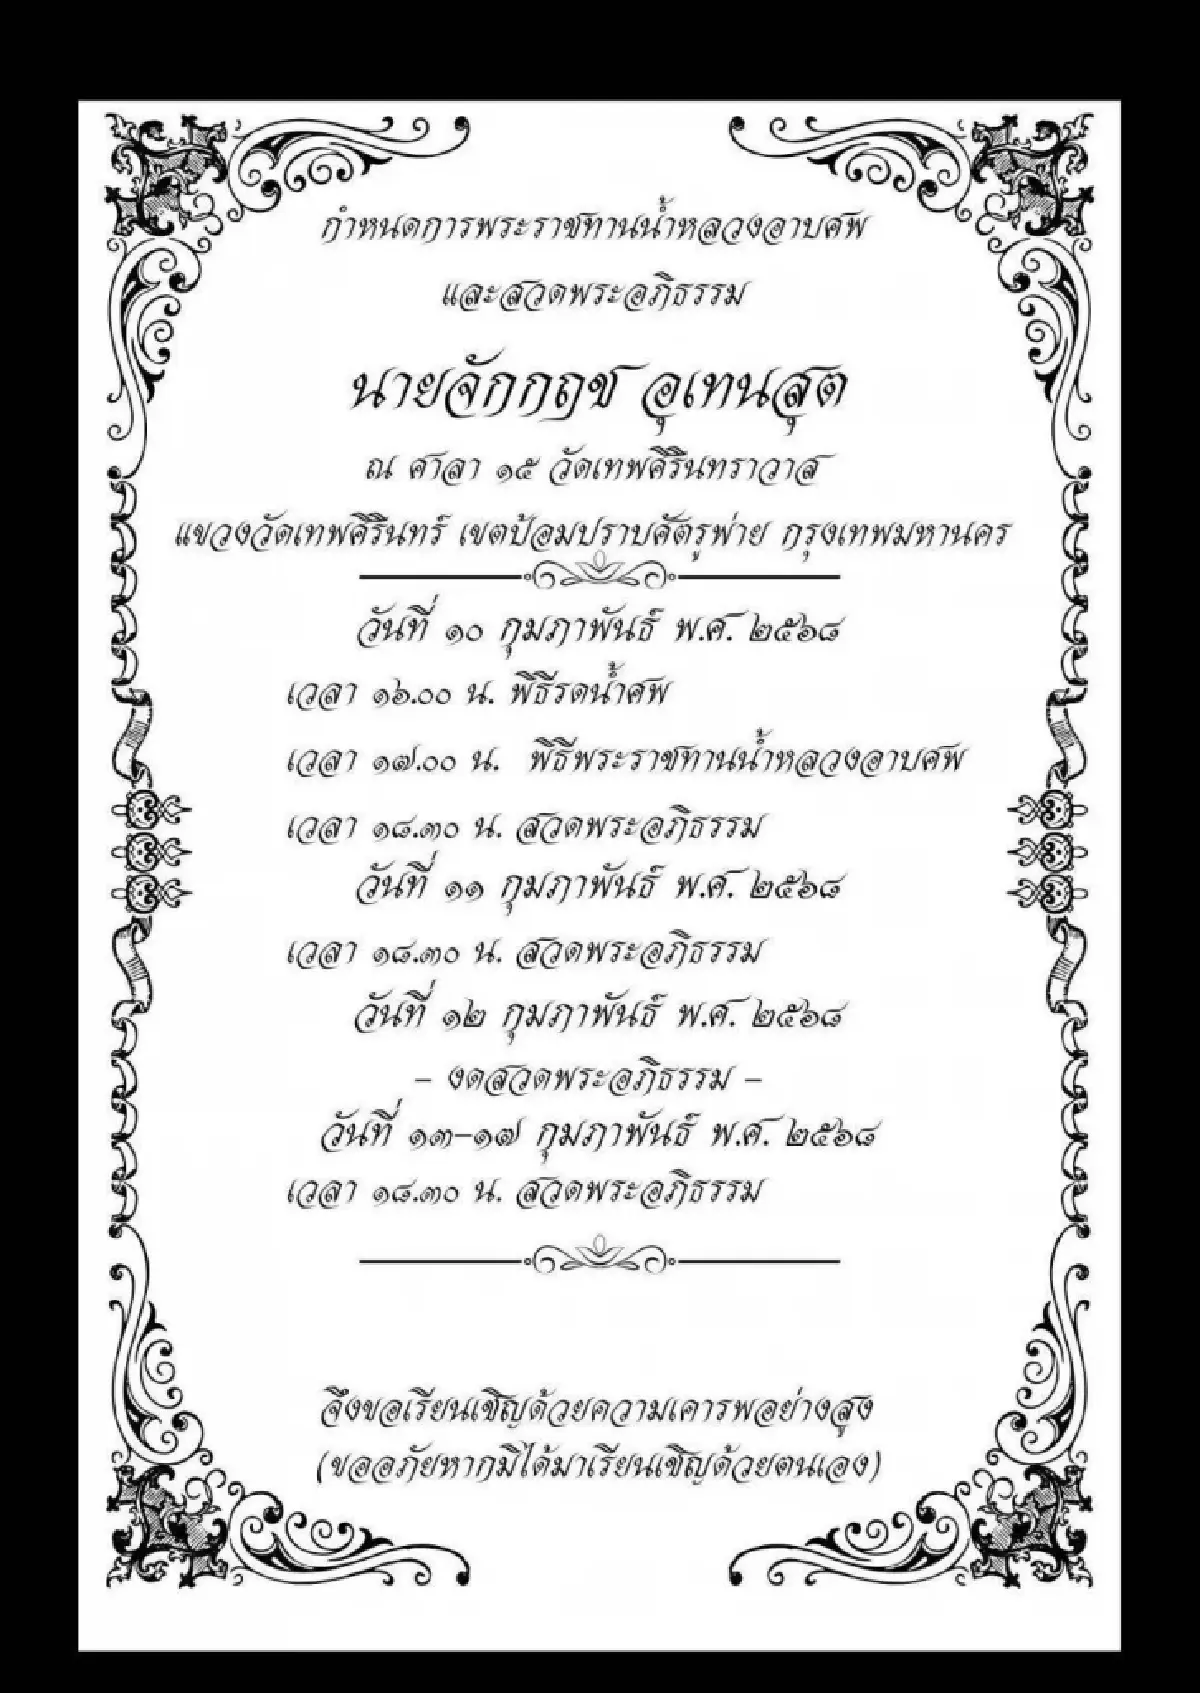 กำหนดการพระราชทานน้ำหลวงอาบศพ
และสวดพระอภิธรรม
นายจักกฤช อุเทนสุต
ณ ศาลา ๑๕ วัดเทพศิรินทราวาส
แขวงวัดเทพศิรินทร์ เขตป้อมปราบศัตรูพ่าย กรุงเทพมหานคร
วันที่ ๑๐ กุมภาพันธ์ พ.ศ. ๒๕๖๘
เวลา ๑๖.๐๐ น. พิธีรดน้ำศพ
เวลา ๑๗.๐๐ น. พิธีพระราชทานน้ำหลวงอาบศพ
เวลา ๑๘.๓๐ น. สวดพระอภิธรรม
วันที่ ๑๑ กุมภาพันธ์ พ.ศ. ๒๕๖๘
เวลา ๑๘.๓๐ น. สวดพระอภิธรรม
วันที่ ๑๒ กุมภาพันธ์ พ.ศ. ๒๕๖๘
– งดสวดพระอภิธรรม –
วันที่ ๑๓–๑๗ กุมภาพันธ์ พ.ศ. ๒๕๖๘
เวลา ๑๘.๓๐ น. สวดพระอภิธรรม
จึงขอเรียนเชิญด้วยความเคารพอย่างสูง
(ขออภัยหากมิได้มาเรียนเชิญด้วยตนเอง)